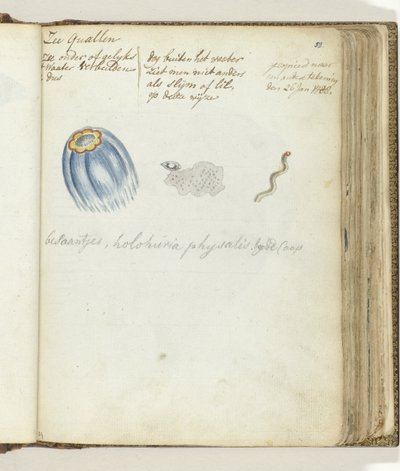 Zee Quallen
53.
Zee onder of gelyks
Waater
dus
dog buiten het water
ziet men niet anders
als slijm of lil,
op deese wijze
gecopieerd naar
een tekening
den 26 Jan 1786.
besaantjes, holohuria physalis. by de Caap